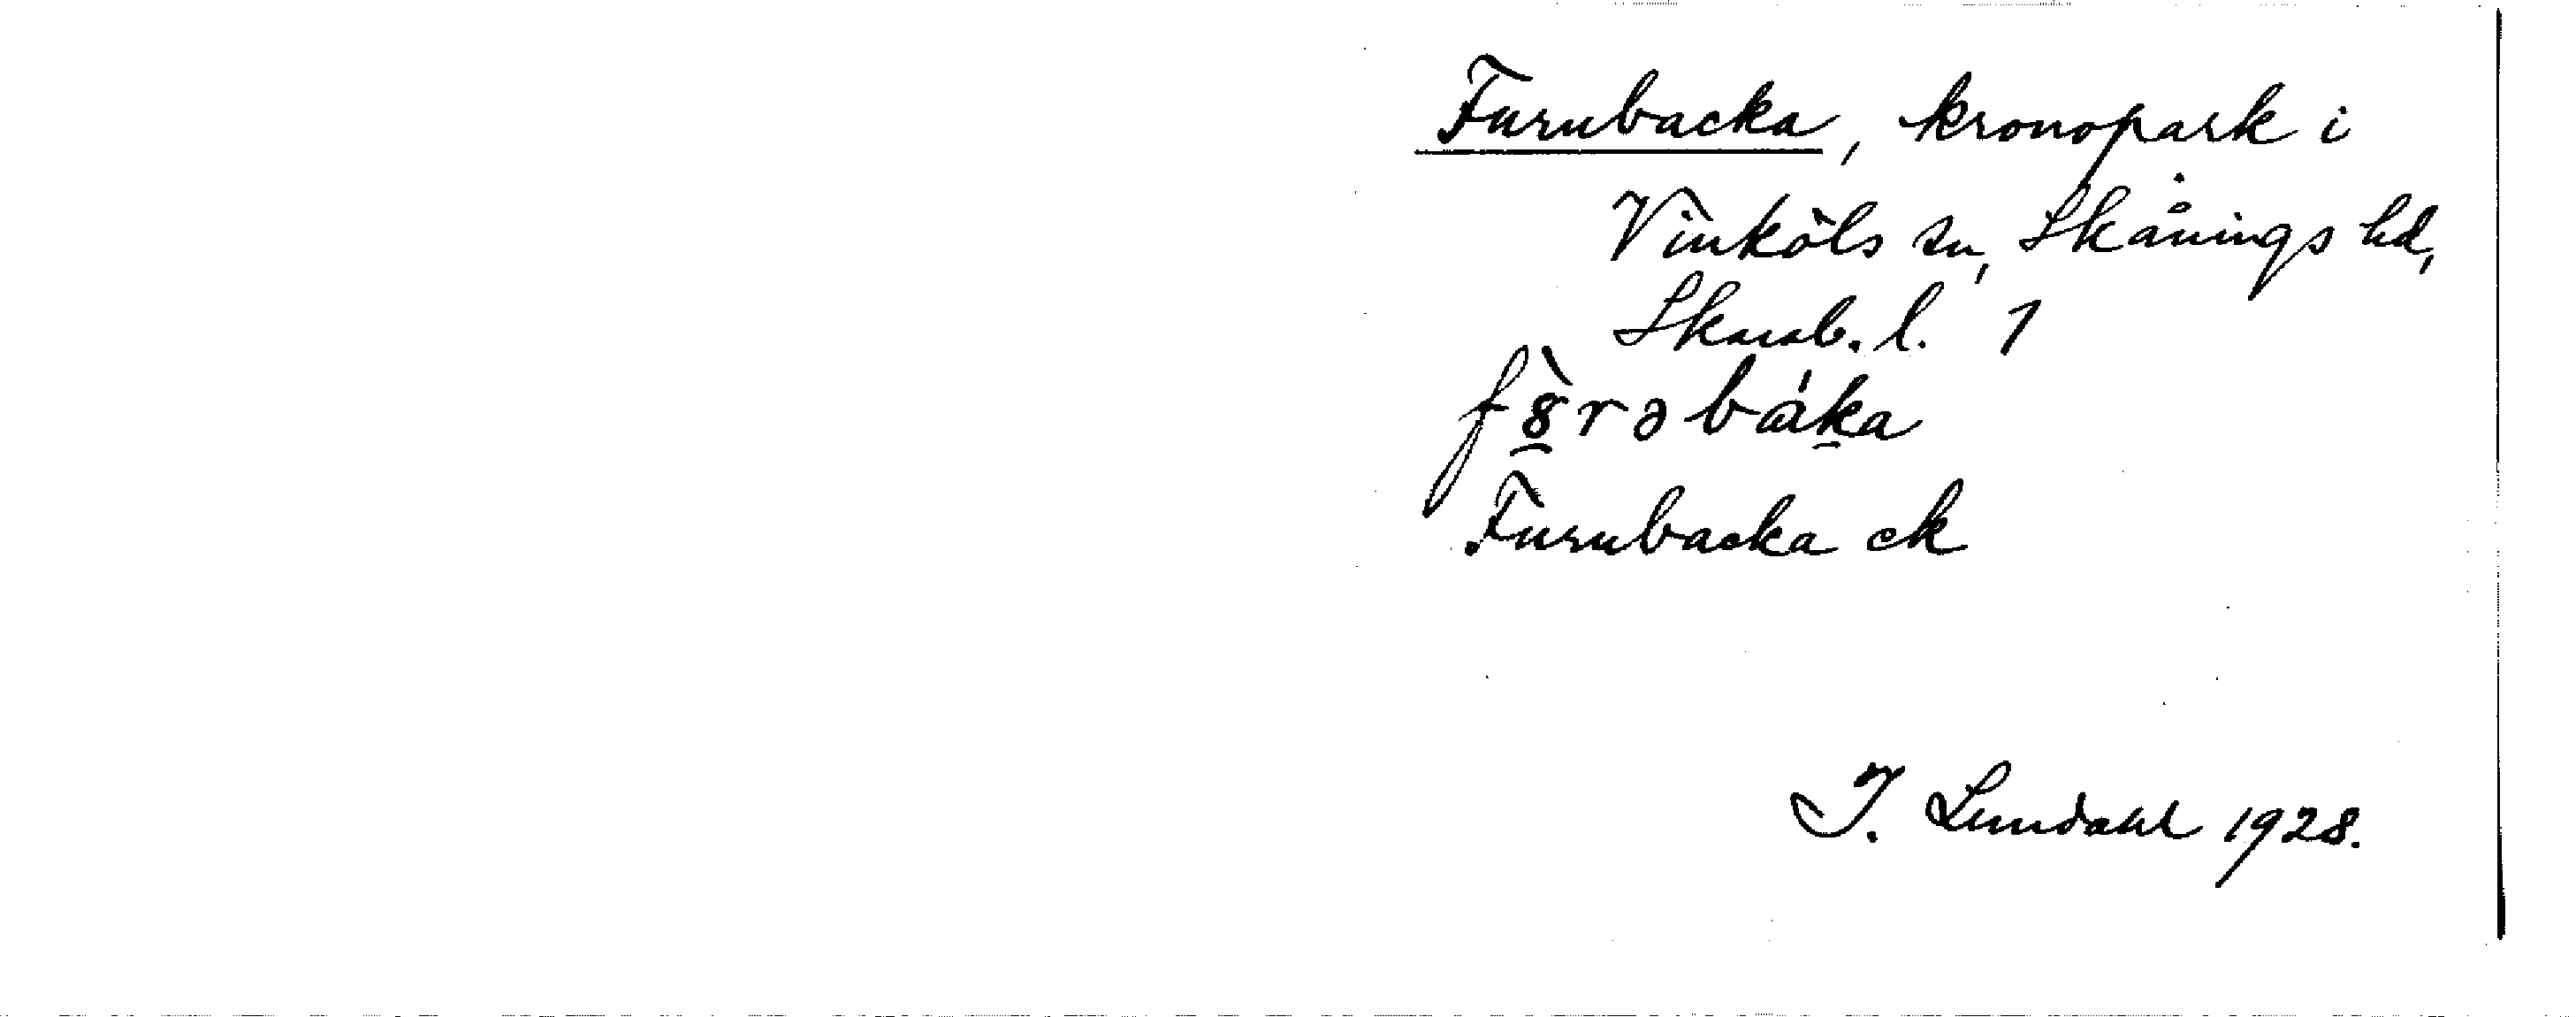 Furubacka, kronopark i
Vinköls sn, Skånings hd,
Skarab. l. 1
f8̀rəbáka
Furubacka ek
I. Lundahl 1928.